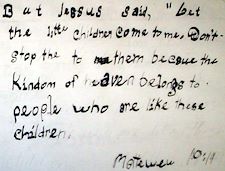 But Jessus said, "Let
the little children come to me. Don't
stop the to them becaue the
Kindom of heaven belongs to
people who are like these
children.
Matewew 19:14